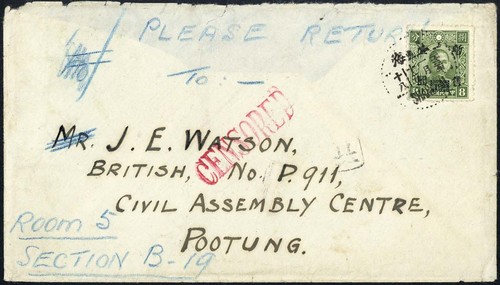 PLEASE RETURN
To:-
CENSORED
MR. J. E. WATSON,
BRITISH, No. P. 911,
CIVIL ASSEMBLY CENTRE,
POOTUNG.
ROOM 5
SECTION B-19
8